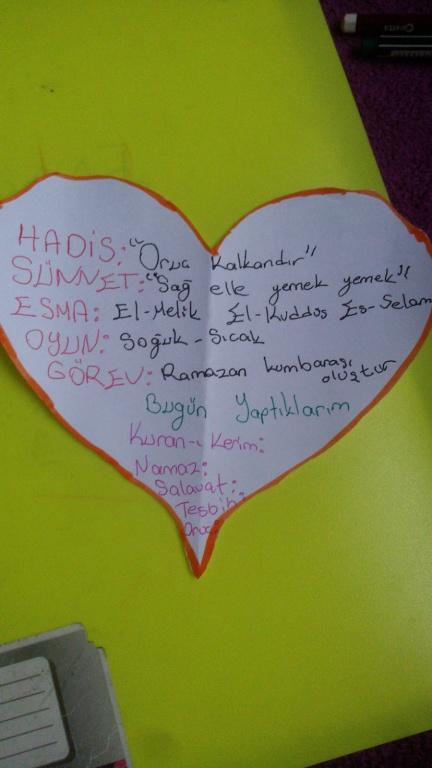 HADİS: "Oruç Kalkandır"
SÜNNET: "Sağ elle yemek yemek"
ESMA: El-Melik El-Kuddüs Es-Selam
OYUN: Soğuk - Sıcak
GÖREV: Ramazan kumbarası oluştur
Bugün Yaptıklarım
Kuran-ı Kerim:
Namaz:
Salavat:
Tesbih:
Oruç: